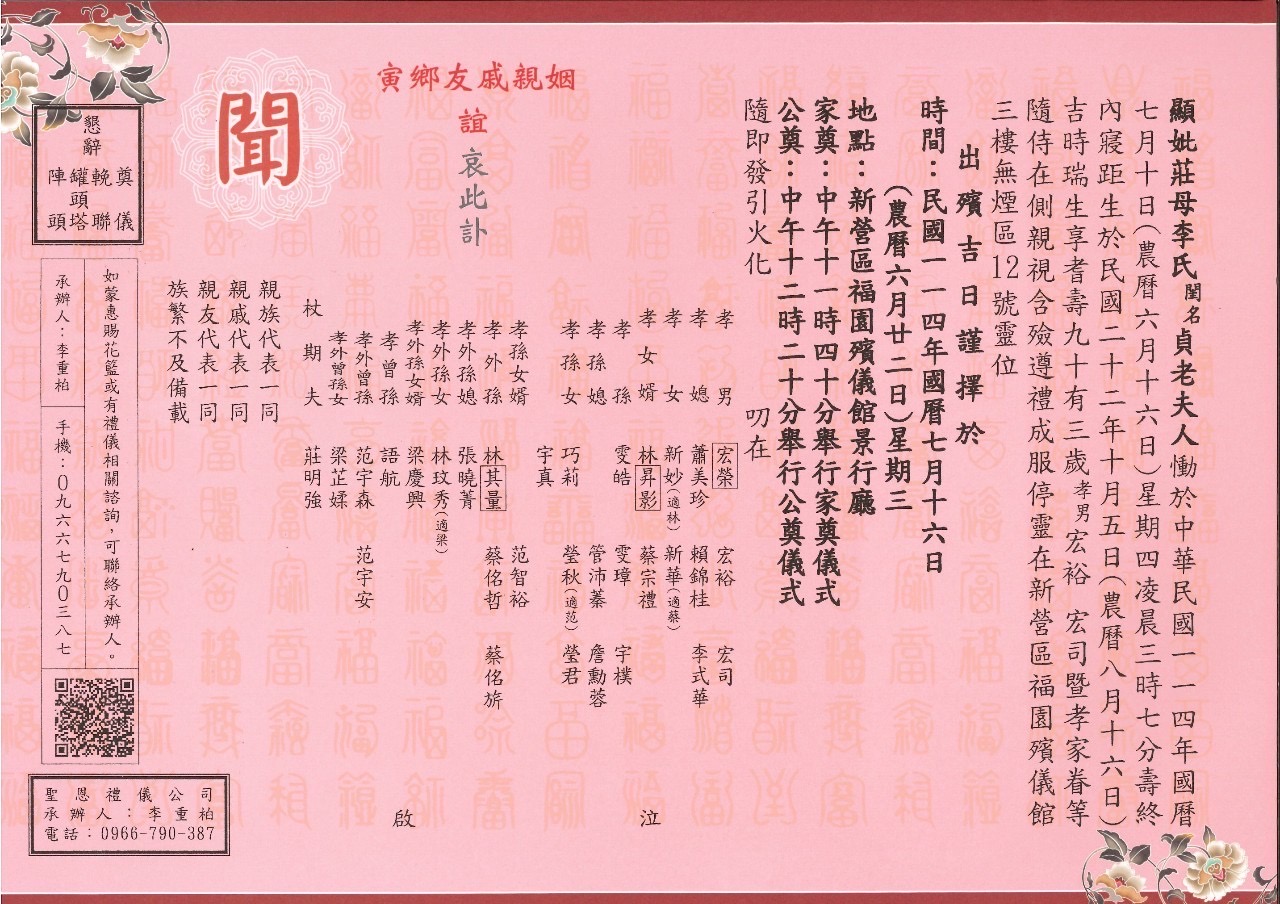 顯妣莊母李氏閨名貞老夫人慟於中華民國一一四年國曆
七月十日(農曆六月十六日)星期四凌晨三時七分壽終
內寢距生於民國二十二年十月五日(農曆八月十六日)
吉時瑞生享耆壽九十有三歲孝男宏裕 宏司暨孝家眷等
隨侍在側親視含殮遵禮成服停靈在新營區福園殯儀館
三樓無煙區12號靈位
出殯吉日謹擇於
時間:民國一一四年國曆七月十六日
(農曆六月廿二日)星期三
地點:新營區福園殯儀館景行廳
家奠:中午十一時四十分舉行家奠儀式
公奠:中午十二時二十分舉行公奠儀式
隨即發引火化 叨在
姻親戚友鄉寅
誼
哀此訃
聞
孝男 宏榮 宏裕 宏司
孝媳 蕭美珍 賴錦桂 李式華
孝女 新妙(適林) 新華(適蔡)
孝女婿 林昇影 蔡宗禮
孝孫 雯皓 雯瑋 宇樸
孝孫媳 管沛蓁 詹勳蓉
孝孫女 巧莉 瑩秋(適范) 瑩君
宇真
孝孫女婿 范智裕
孝外孫 林其量 蔡佲哲 蔡佲旂
孝外孫媳 張曉菁
孝外孫女 林玟秀(適梁)
孝外孫女婿 梁慶興
孝曾孫 語航
孝外曾孫 范宇森 范宇安
孝外曾孫女 梁芷媃
杖期夫 莊明強
泣
啟
親族代表一同
親戚代表一同
親友代表一同
族繁不及備載
懇辭
奠儀
輓聯
罐頭塔
陣頭
如蒙惠賜花籃或有禮儀相關諮詢,可聯絡承辦人。
承辦人:李重柏
手機:0九六六七九0三八七
聖恩禮儀公司
承辦人:李重柏
電話:0966-790-387